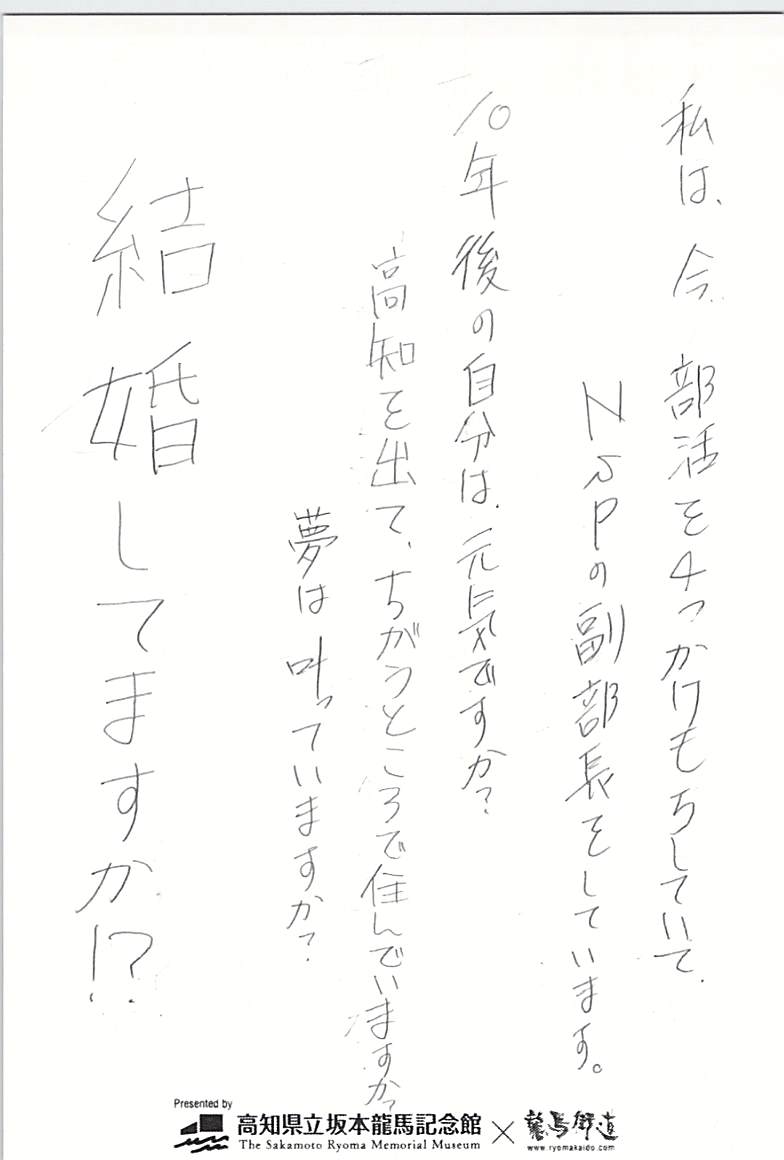 私は、今 部活を4つかけもちしていて、
NSPの副部長をしています。
10年後の自分は、元気ですか?
高知を出て、ちがうところで住んでいますか?
夢は叶っていますか?
結婚してますか!?
Presented by
高知県立坂本龍馬記念館
The Sakamoto Ryoma Memorial Museum
×
龍馬街道
www.ryomakaido.com